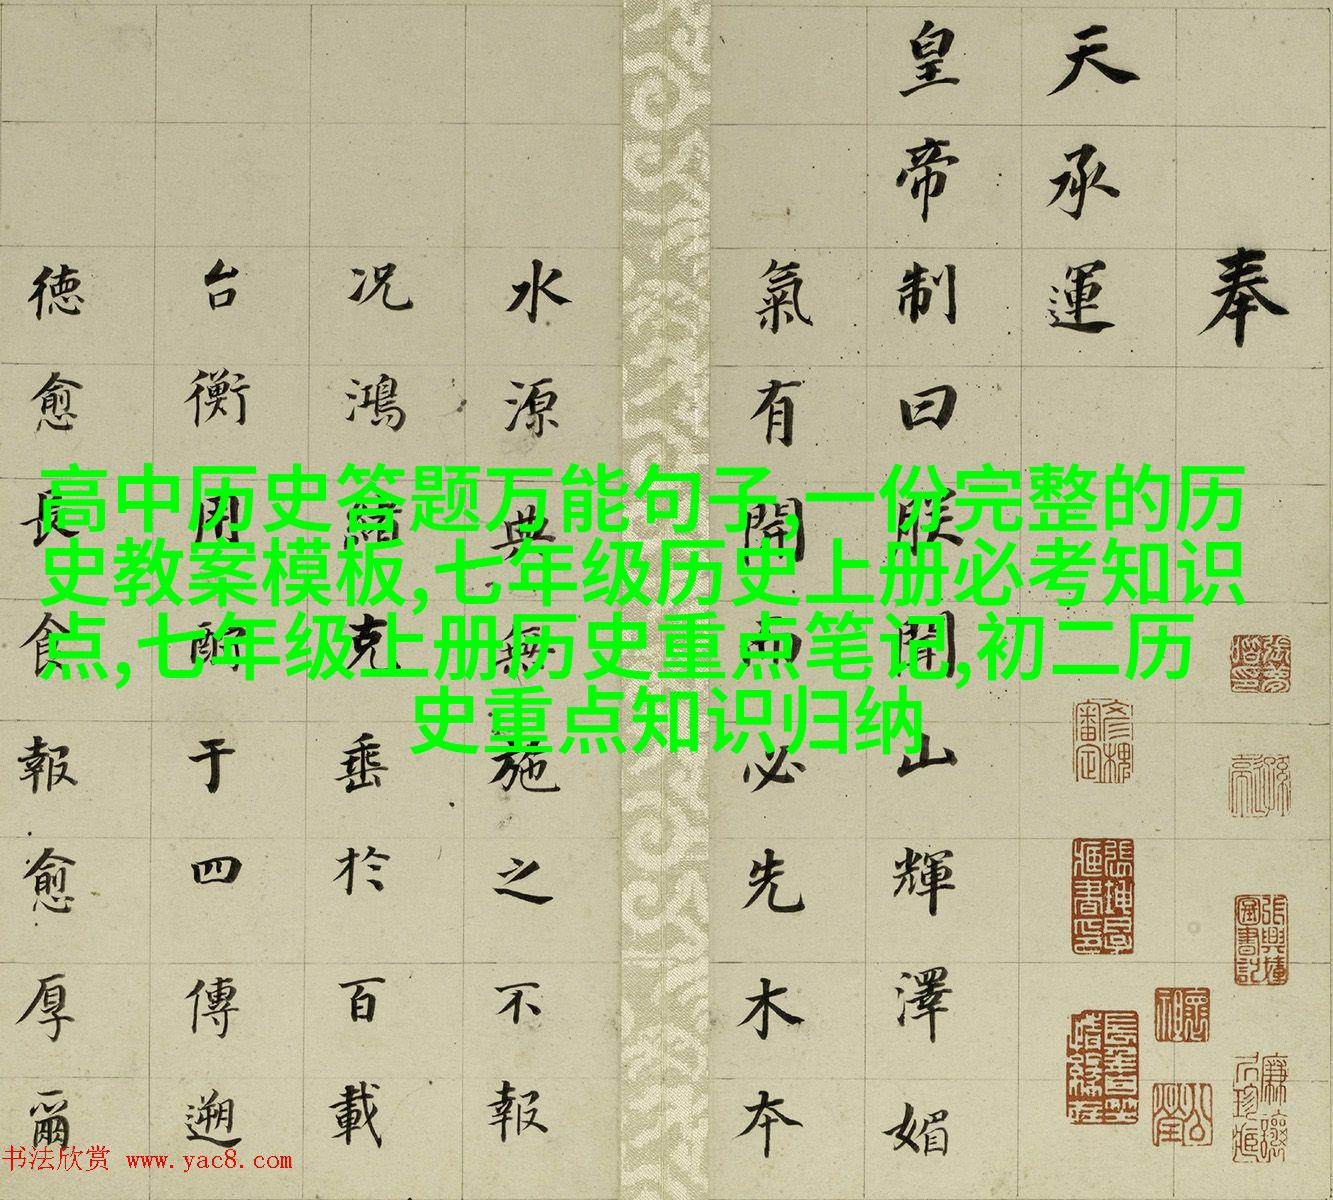 奉
天承運
皇帝制曰朕聞山輝澤媚
氣有開而必先木本
水源典無施之不報
况鴻緒克垂於百載
台衡用酬于四傳遡
德愈長食報愈厚爾
高中历史答题万能句子,一份完整的历
史教案模板,七年级历史上册必考知识
点,七年级上册历史重点笔记,初二历
史重点知识归纳
书法欣赏 www.yac8.com